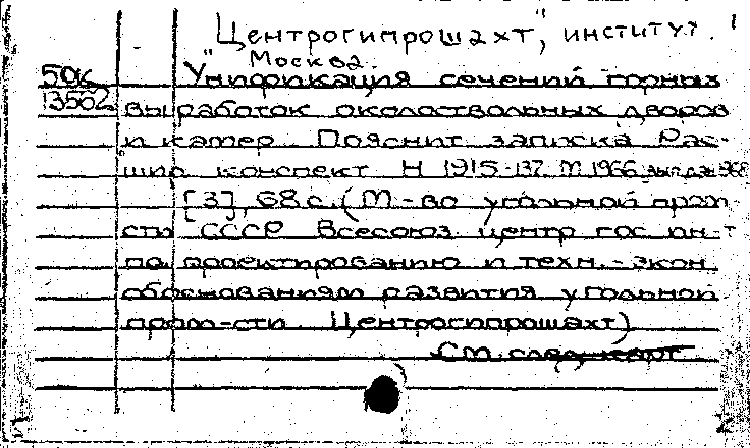 "Центрогипрошахт", институт.
Москва.
50к Унификация сечений горных
13562 выработок околоствольных дворов
и камер. Пояснит. записка Рас-
шир. конспект Н 1915-137. М. 1966
[3], 68 с. (М-во угольной пром-
сти СССР Всесоюз. центр. гос. ин-т
по проектированию и техн.-экон.
обоснованиям развития угольной
пром-сти Центрогипрошахт)
См. след. карт.